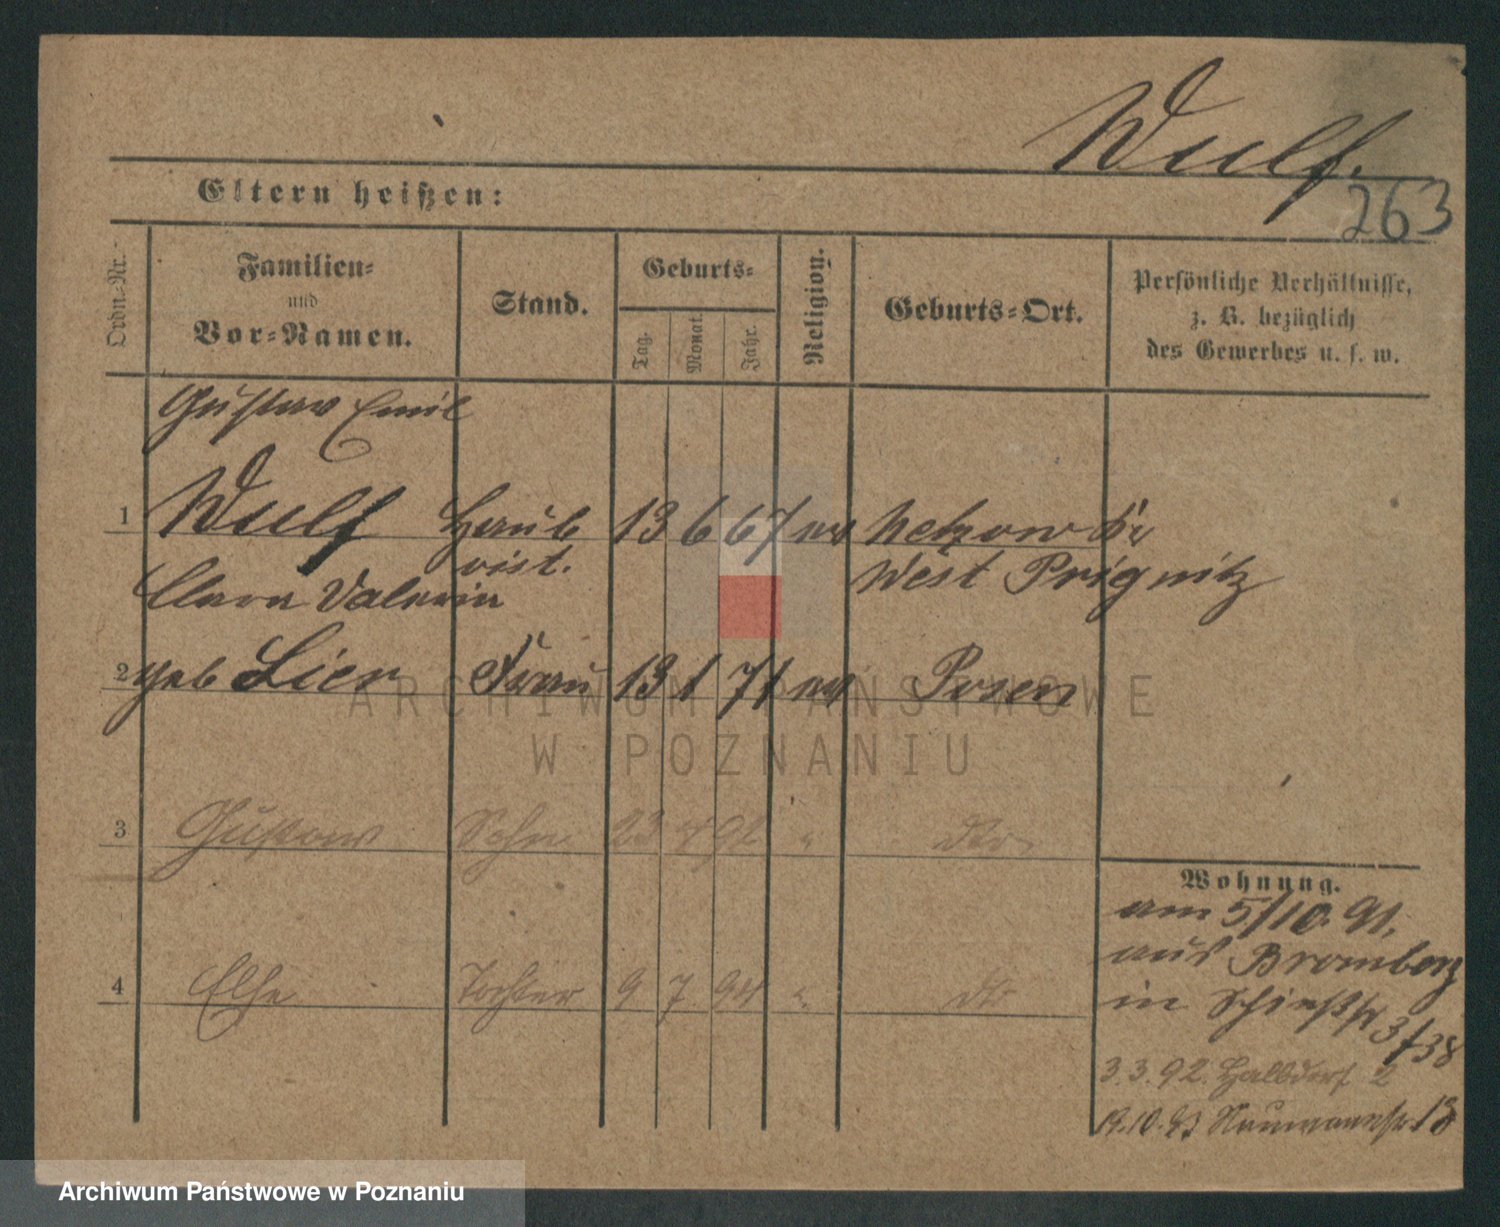 Wulf.
263
Eltern heißen:
Ordn.-Nr.
Familien-
und
Vor-Namen.
Stand.
Geburts-
Tag.
Monat.
Jahr.
Religion.
Geburts-Ort.
Persönliche Verhältnisse,
z. B. bezüglich
des Gewerbes u. s. w.
Gustav Emil
1 Wulf Hautb 13 6 67 ev Netzow Kr
oist. West Prignitz
Clara Valeria
2 geb Lier Frau 13 1 71 ev Posen
ARCHIWUM PAŃSTWOWE
W POZNANIU
3 Gustav Sohn 23 7 91 " dto
4 Else Tochter 9 7 94 " dto
Wohnung.
am 5/10. 91.
aus Bromberg
in Schießstr 3/38
3.3.92. Halbdorf 2
19.10.93 Naumannstr 13
Archiwum Państwowe w Poznaniu